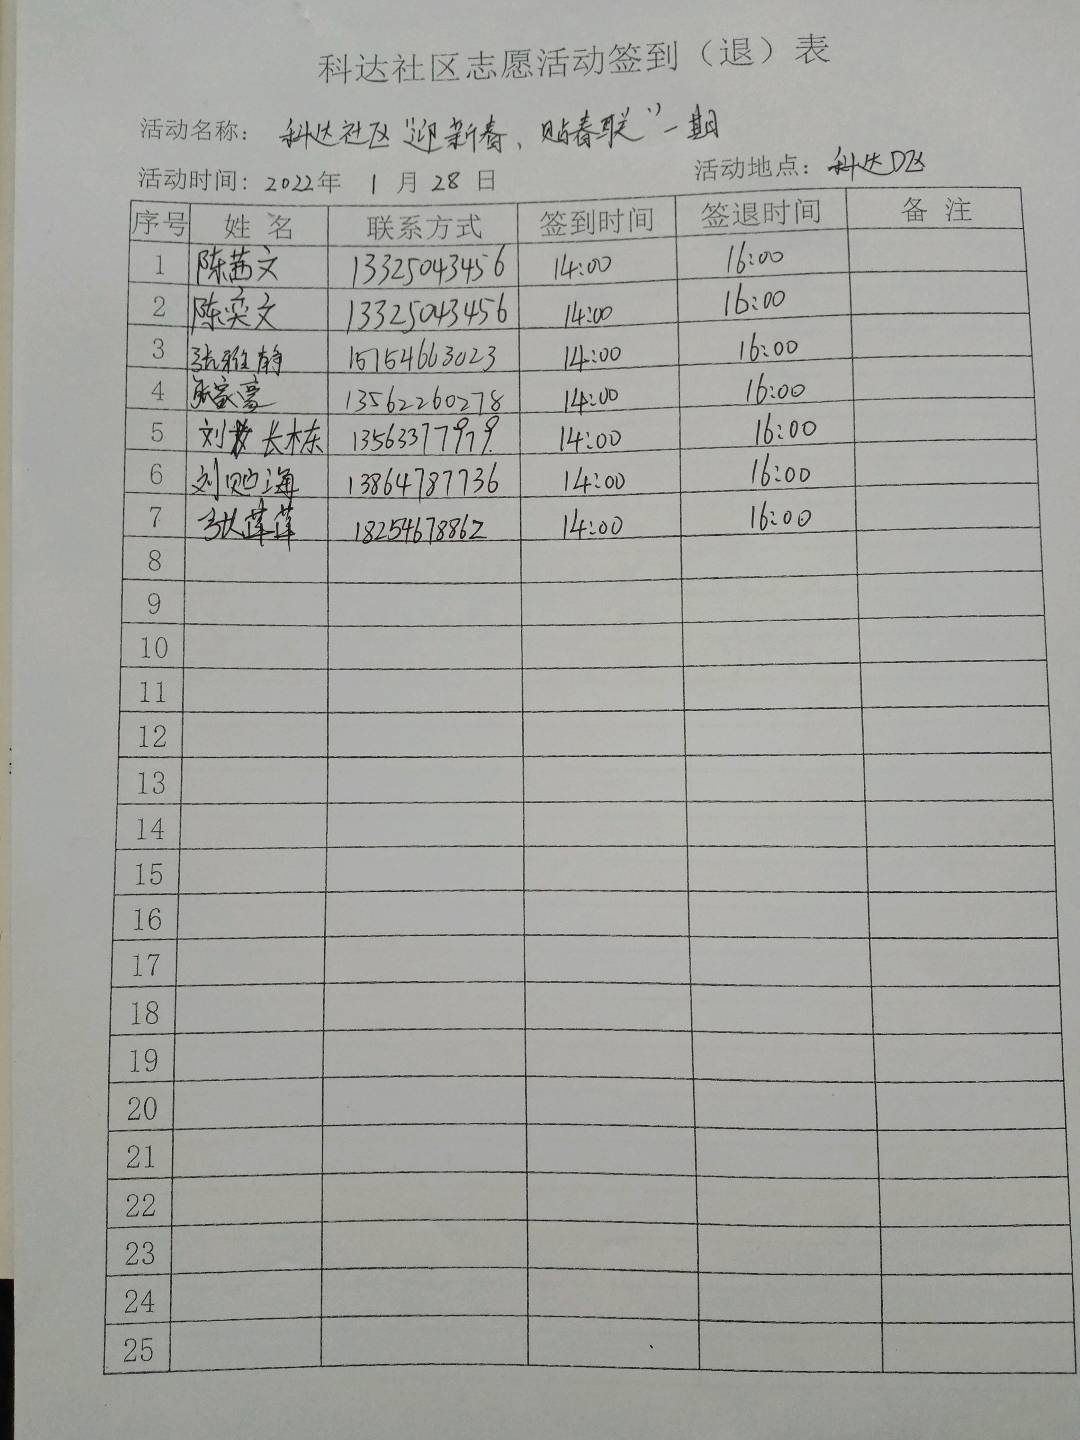 科达社区志愿活动签到（退）表
活动名称： 科达社区"迎新春、贴春联"一期
活动时间：2022年 1月28日 活动地点：科达D区
序号 姓名 联系方式 签到时间 签退时间 备注
1 陈茜文 13325043456 14:00 16:00
2 陈奕文 13325043456 14:00 16:00
3 张雅翰 15154663023 14:00 16:00
4 张家豪 13562260278 14:00 16:00
5 刘 长栋 13563377979 14:00 16:00
6 刘 海 13864787736 14:00 16:00
7 张莲莲 18254678862 14:00 16:00
8
9
10
11
12
13
14
15
16
17
18
19
20
21
22
23
24
25